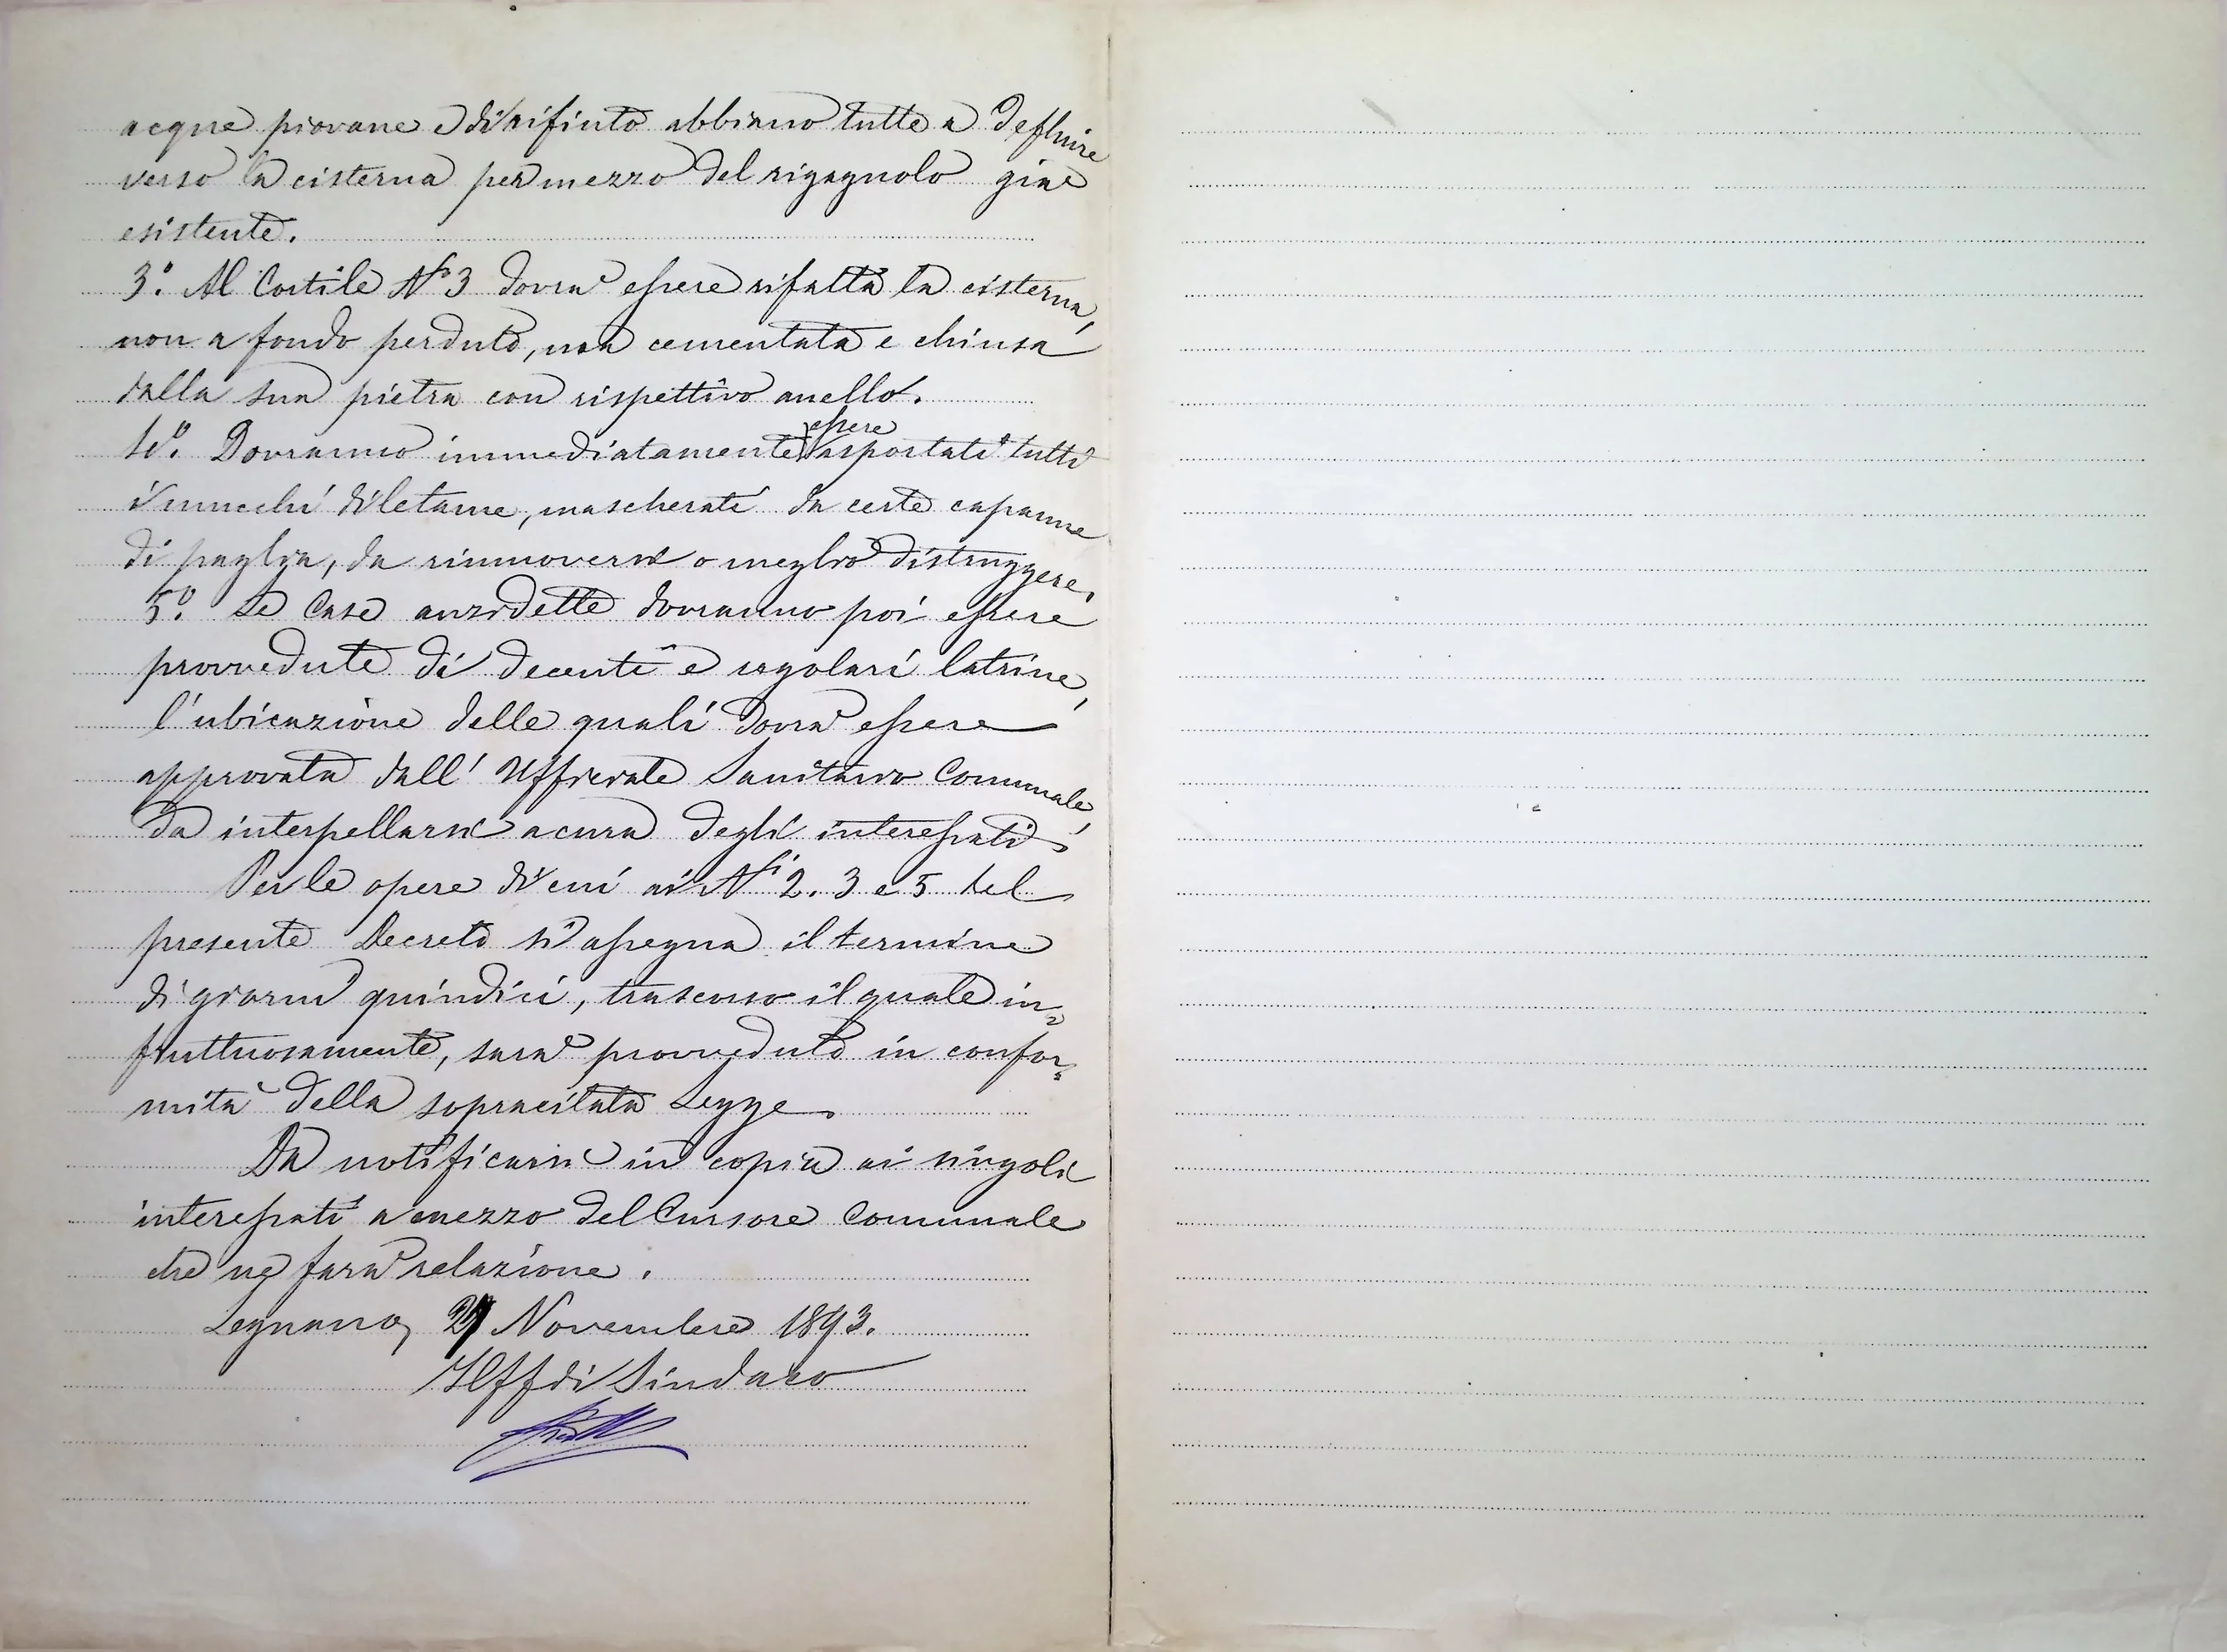 acque piovane e di rifiuto abbiano tutte a defluire
verso la cisterna per mezzo del rigagnolo già
esistente.
3.° Al Cortile N.° 3 dovrà essere rifatta la cisterna,
non a fondo perduto, ma cementata e chiusa
dalla sua pietra con rispettivo anello.
essere
4.° Dovranno immediatamente asportati tutti
i mucchi di letame, mascherati da certe capanne
di paglia, da rimuoversi o meglio distruggere.
5.° Le Case anzidette dovranno poi essere
provvedute di decenti e regolari latrine,
l'ubicazione delle quali dovrà essere
approvata dall' Ufficiale Sanitario Comunale,
da interpellarsi a cura degli interessati.
Per le opere di cui ai N.i 2. 3 e 5 del
presente Decreto si assegna il termine
di giorni quindici, trascorso il quale in=
fruttuosamente, sarà provveduto in confor=
mità della sopracitata Legge.
Da notificarsi in copia ai singoli
interessati a mezzo del Cursore Comunale
che ne farà relazione.
Legnano, Novembre 1893.
Il ff di Sindaco